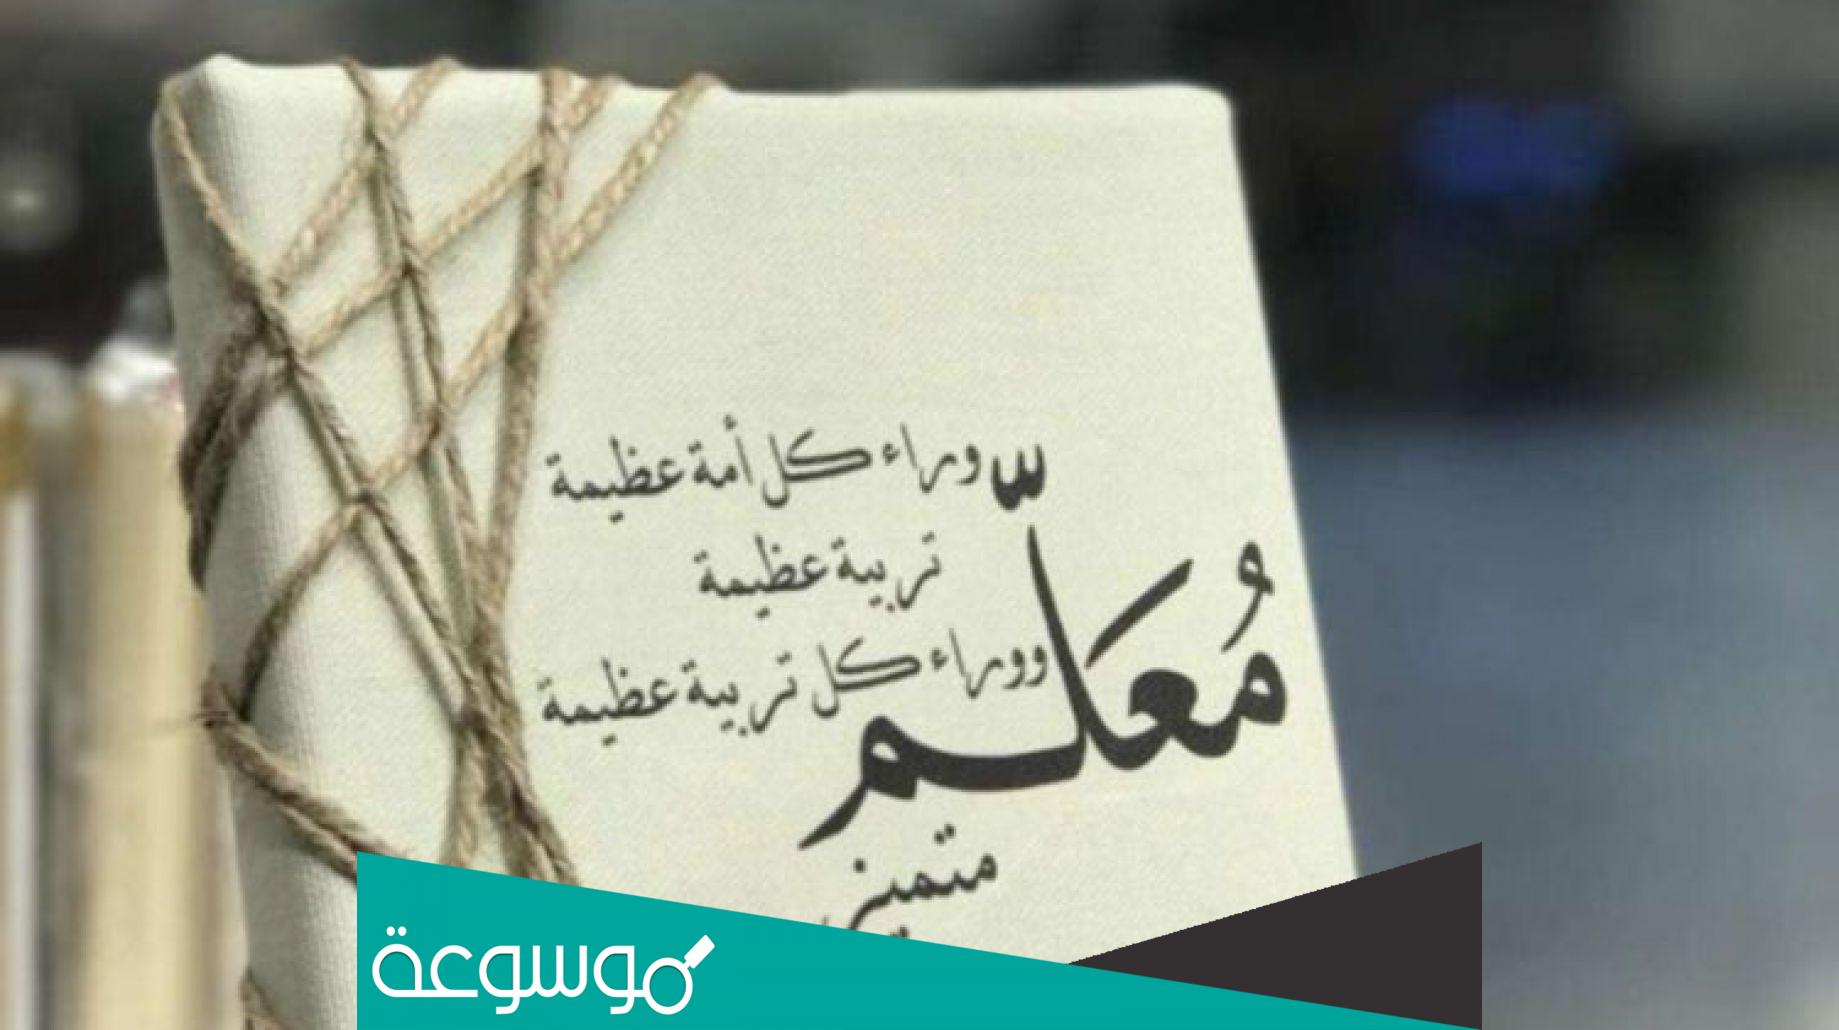 وراء كل أمة عظيمة
تربية عظيمة
ووراء كل تربية عظيمة
مُعَلّم
متميز
موسوعة